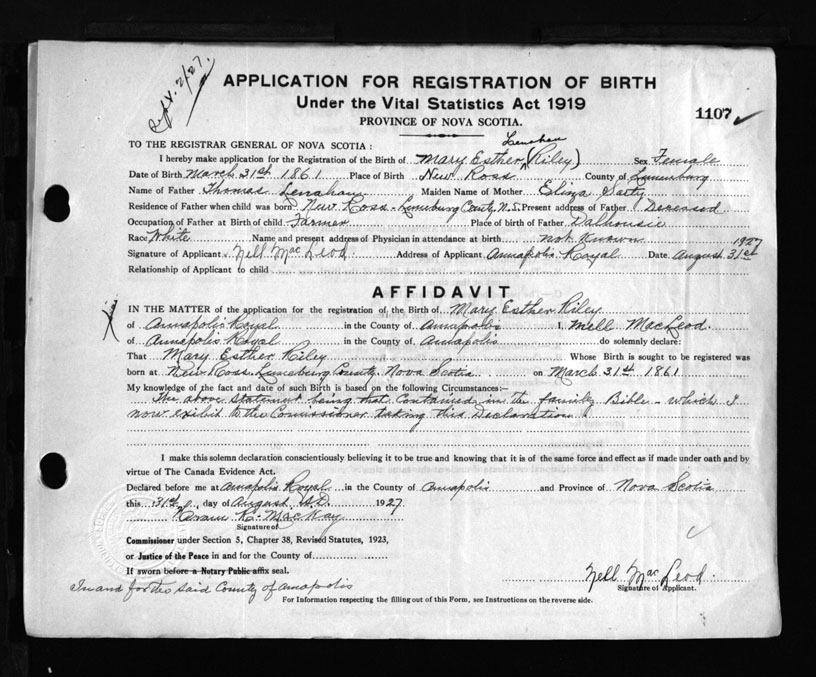 Sept. 2/27.
APPLICATION FOR REGISTRATION OF BIRTH
Under the Vital Statistics Act 1919
PROVINCE OF NOVA SCOTIA.
1107
TO THE REGISTRAR GENERAL OF NOVA SCOTIA :
Lenahan
I hereby make application for the Registration of the Birth of Mary Esther (Riley) Sex Female
Date of Birth March 31st 1861 Place of Birth New Ross County of Lunenburg
Name of Father Thomas Lenahan Maiden Name of Mother Eliza
Residence of Father when child was born New Ross Lunenburg County N.S. Present address of Father Deceased
Occupation of Father at Birth of child Farmer Place of birth of Father Dalhousie
Race White Name and present address of Physician in attendance at birth not Known
Signature of Applicant Nell MacLeod Address of Applicant Annapolis Royal Date August 31st 1927
Relationship of Applicant to child
AFFIDAVIT
IN THE MATTER of the application for the registration of the Birth of Mary Esther Riley
of Annapolis Royal in the County of Annapolis I, Nell MacLeod
of Annapolis Royal in the County of Annapolis do solemnly declare:
That Mary Esther Riley Whose Birth is sought to be registered was
born at New Ross Lunenburg County Nova Scotia on March 31st 1861
My knowledge of the fact and date of such Birth is based on the following Circumstances:—
The above statement being that contained in the family Bible - which I
now exibit to the Comissioner taking this Declaration
I make this solemn declaration conscientiously believing it to be true and knowing that it is of the same force and effect as if made under oath and by
virtue of The Canada Evidence Act.
Declared before me at Annapolis Royal in the County of Annapolis and Province of Nova Scotia
this 31st day of August A.D. 1927
K. MacKay
Signature of
Commissioner under Section 5, Chapter 38, Revised Statutes, 1923,
or Justice of the Peace in and for the County of
If sworn before a Notary Public affix seal.
In and for the said County of Annapolis
Nell MacLeod
Signature of Applicant.
For Information respecting the filling out of this Form, see Instructions on the reverse side.